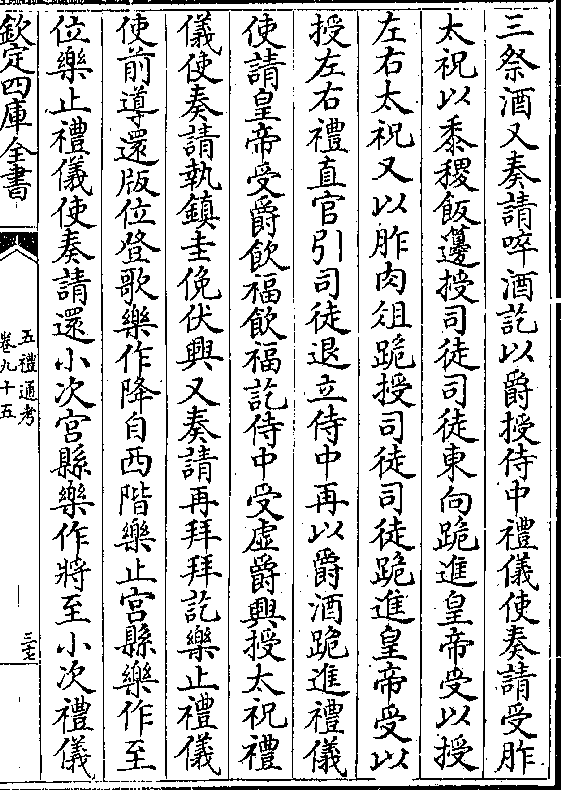 三祭酒又奏請啐酒訖以爵授侍中禮儀使奏請受胙
太祝以黍稷飯籩授司徒司徒東向跪進皇帝受以授
左右太祝又以胙肉俎跪授司徒司徒跪進皇帝受以
授左右禮直官引司徒退立侍中再以爵酒跪進禮儀
使請皇帝受爵飲福飲福訖侍中受虛爵興授太祝禮
儀使奏請執鎮圭俛伏興又奏請再拜拜訖樂止禮儀
使前導還版位登歌樂作降自西階樂止宮縣樂作至
位樂止禮儀使奏請還小次宮縣樂作將至小次禮儀
欽定四庫全書
五禮通考
卷九十五
三七